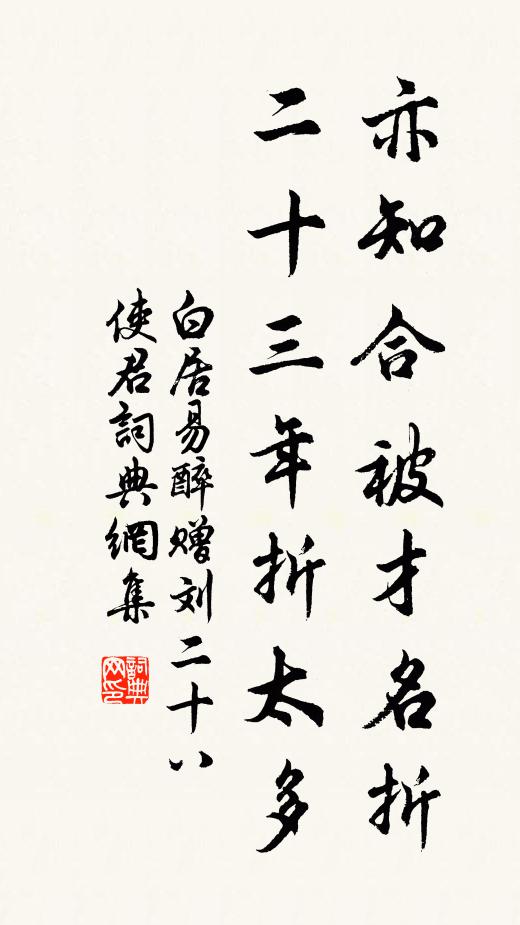 亦知合被才名折
二十三年折太多
白居易醉赠刘二十八
使君詞典網集
詞典网印